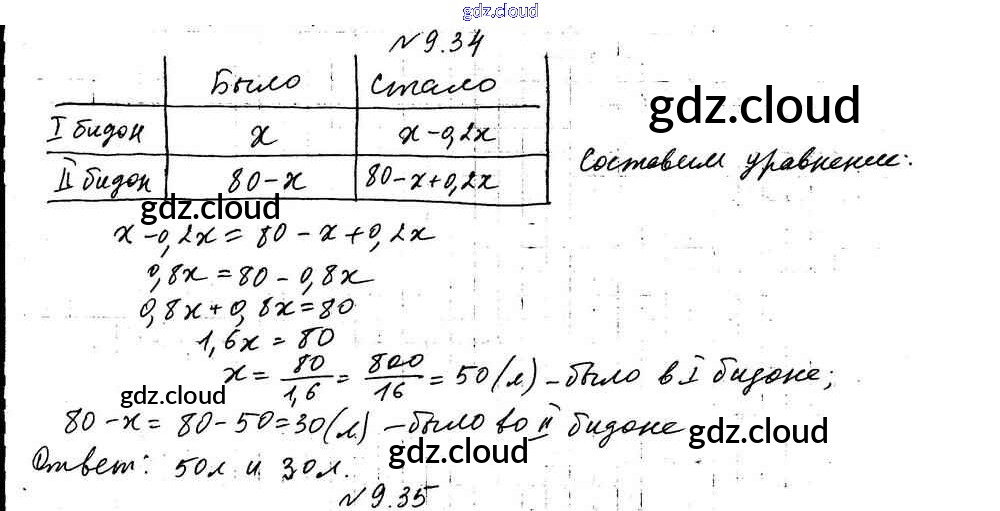 gdz.cloud
№9.34
Было Стало
gdz.cloud
I бидон x x-0,2x
Составим уравнение:
II бидон 80-x 80-x+0,2x
gdz.cloud
x-0,2x=80-x+0,2x
0,8x=80-0,8x
0,8x+0,8x=80
1,6x=80
x=80/1,6=800/16=50(л)-было в I бидоне;
gdz.cloud
80-x=80-50=30(л)-было во II бидоне
gdz.cloud
gdz.cloud
Ответ: 50л и 30л.
№9.35